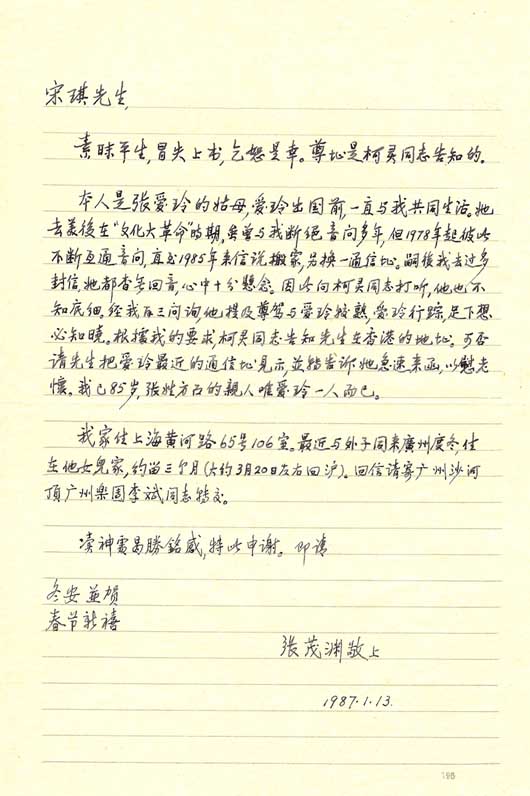 宋琪先生,
素昧平生,冒失上书,乞恕是幸。尊址是柯灵同志告知的.
本人是張愛玲的姑母,愛玲出国前,一直与我共同生活。她
去美後在"文化大革命"时期,虽曾与我断絕音问多年,但1978年起彼此
不断互通音问,直到1985年来信说搬家,另换一通信址。嗣後我去过多
封信,她都杳无回音,心中十分懸念。因此向柯灵同志打听,他也不
知底细,经我再三问询他提及尊驾与愛玲较熟,愛玲行踪,足下想
必知晓。根據我的要求柯灵同志告知先生在香港的地址。可否
请先生把愛玲最近的通信址見示,並转告诉她急速来函,以慰老
懷。我已85岁,張姓方面的親人唯愛玲一人而已。
我家住上海黄河路65号106室。最近与外子同来廣州度冬住
在他女兒家,约留三个月(大约3月20日左右回沪)。回信请寄广州沙河
頂广州乐团李斌同志转交。
凟神雷曷勝銘感,特此申谢。即请
冬安並贺
春节新禧
张茂渊敬上
1987.1.13.
196